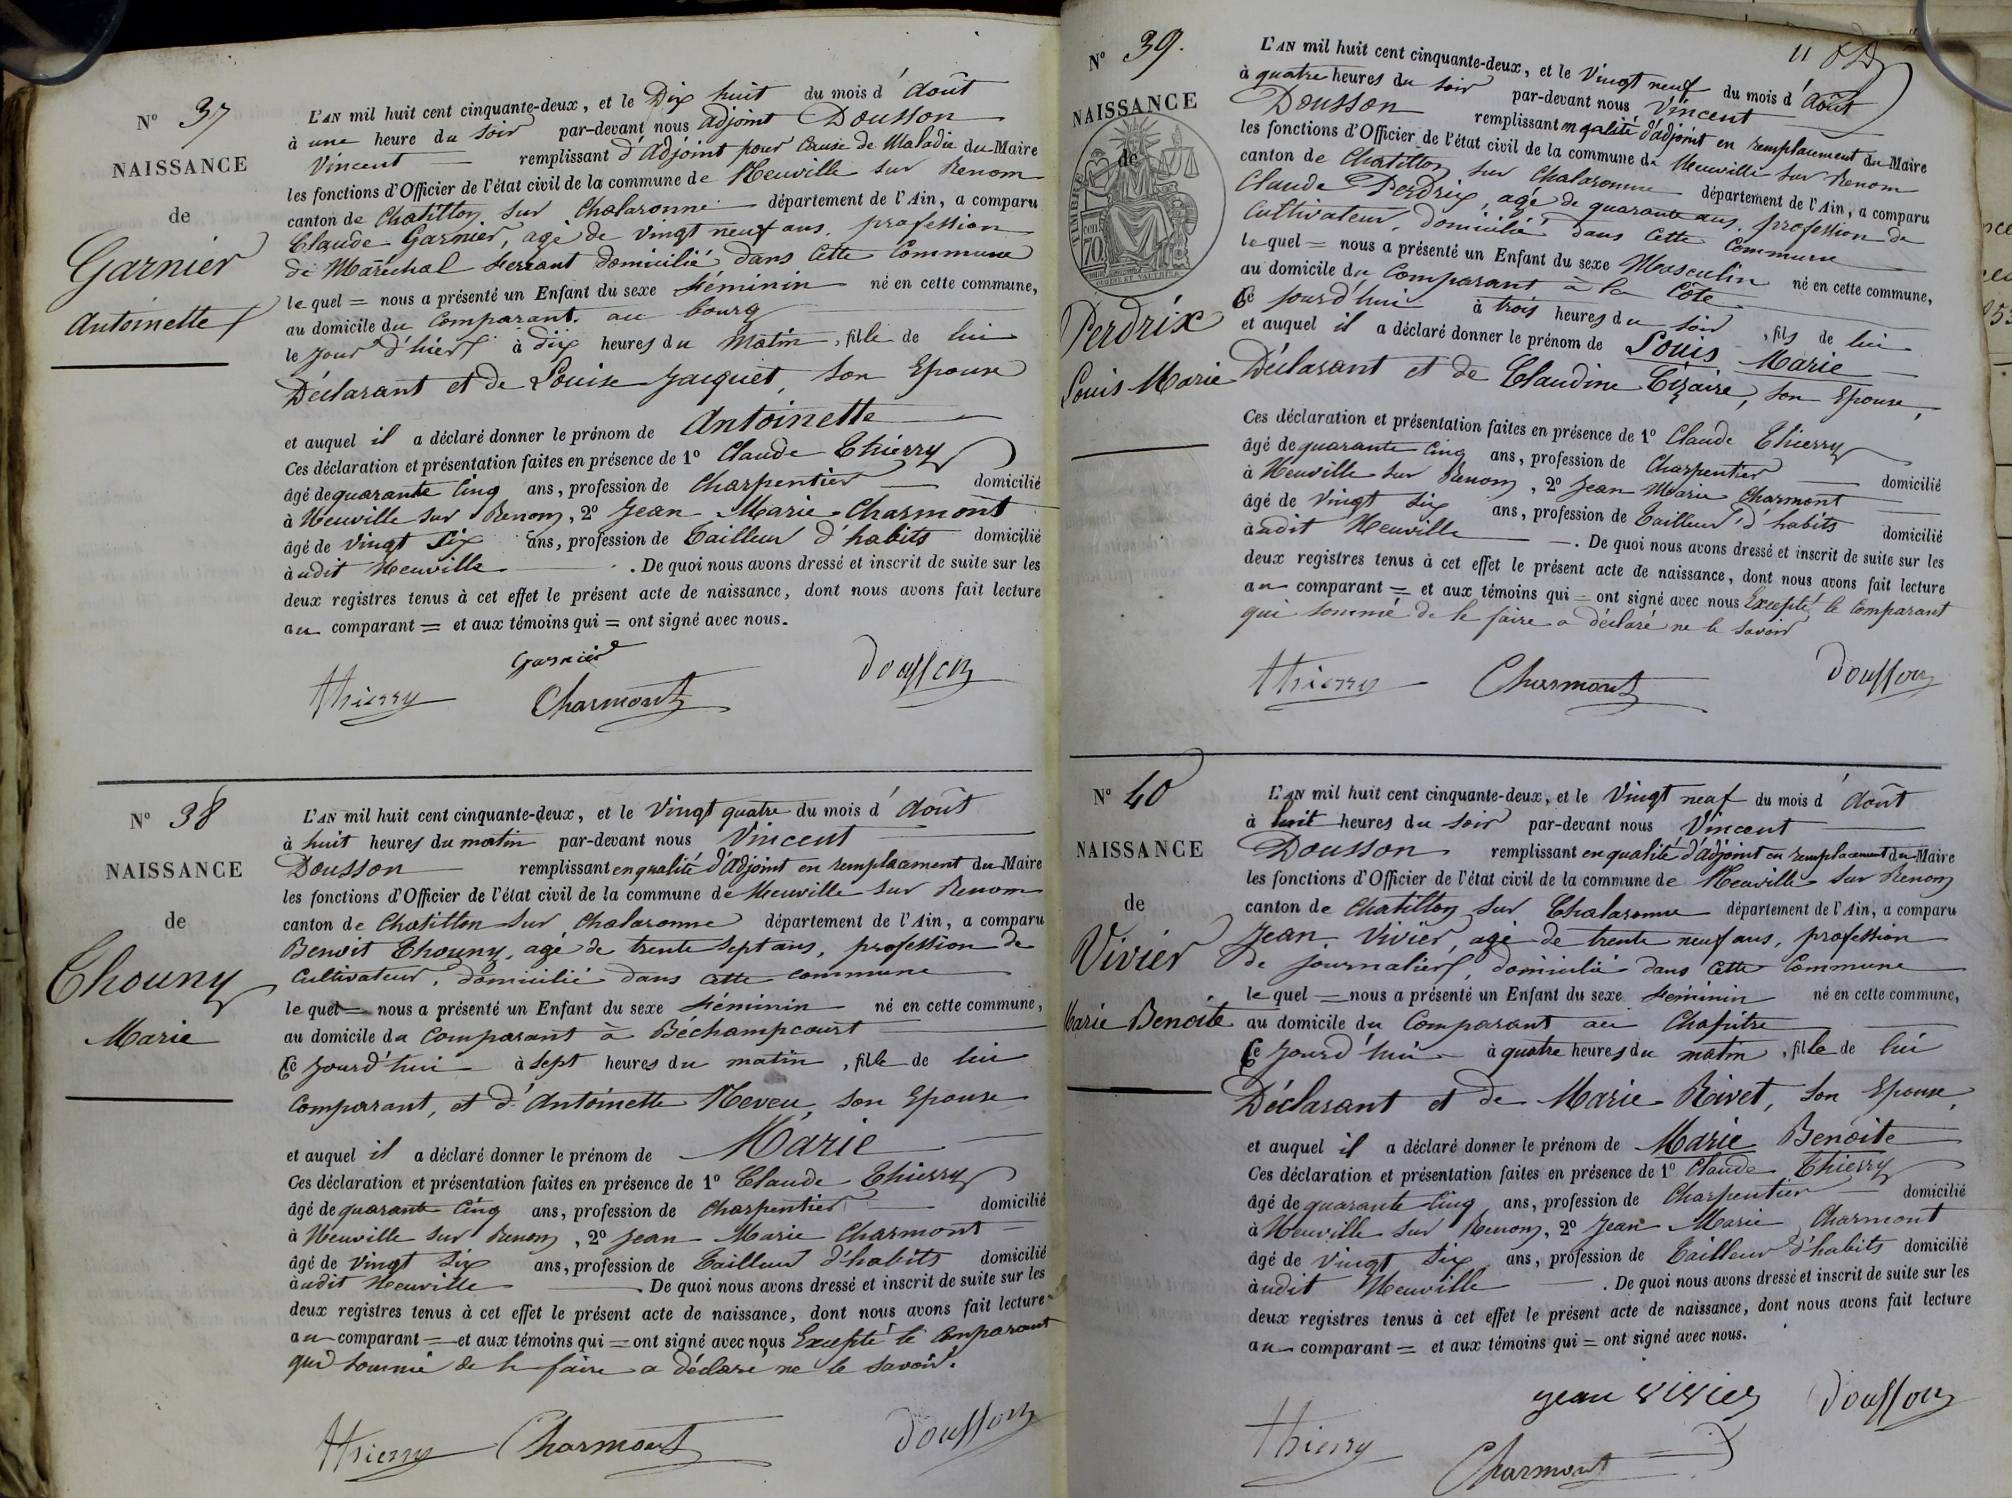 N° 37
NAISSANCE
de
Garnier
Antoinette
L'AN mil huit cent cinquante-deux, et le Dix huit du mois d'Août
à une heure du soir par-devant nous adjoint Dousson
Vincent remplissant d'Adjoint pour Cause de Maladie du Maire
les fonctions d'Officier de l'état civil de la commune de Neuville sur Renom
canton de Chatillon sur Chalaronne département de l'Ain, a comparu
Claude Garnier, agé de vingt neuf ans, profession
de Maréchal ferrant domicilié dans cette Commune
lequel = nous a présenté un Enfant du sexe féminin né en cette commune,
au domicile du Comparant au bourg
le jour d'hier à dix heures du Matin, fille de lui
Déclarant et de Louise Jacquet, son Epouse
et auquel il a déclaré donner le prénom de Antoinette
Ces déclaration et présentation faites en présence de 1° Claude Thierry
âgé de quarante Cinq ans, profession de Charpentier domicilié
à Neuville sur Renom, 2° Jean Marie Charmont
âgé de vingt six ans, profession de Tailleur d'habits domicilié
audit Neuville . De quoi nous avons dressé et inscrit de suite sur les
deux registres tenus à cet effet le présent acte de naissance, dont nous avons fait lecture
au comparant = et aux témoins qui = ont signé avec nous.
Garnier
Thierry Charmont Dousson
N° 38
NAISSANCE
de
Chouny
Marie
L'AN mil huit cent cinquante-deux, et le Vingt quatre du mois d'Août
à huit heures du matin par-devant nous Vincent
Dousson remplissant en qualité d'Adjoint en remplacement du Maire
les fonctions d'Officier de l'état civil de la commune de Neuville sur Renom
canton de Chatillon sur Chalaronne département de l'Ain, a comparu
Benoit Chouny, agé de trente sept ans, profession de
Cultivateur, domicilié dans cette commune
lequel = nous a présenté un Enfant du sexe féminin né en cette commune,
au domicile du Comparant à Béchampcourt
Ce jourd'hui à sept heures du matin, fille de lui
Comparant, et d'Antoinette Neveu, son Epouse
et auquel il a déclaré donner le prénom de Marie
Ces déclaration et présentation faites en présence de 1° Claude Thierry
âgé de quarante Cinq ans, profession de Charpentier domicilié
à Neuville sur Renom, 2° Jean Marie Charmont
âgé de vingt six ans, profession de Tailleur d'habits domicilié
audit Neuville . De quoi nous avons dressé et inscrit de suite sur les
deux registres tenus à cet effet le présent acte de naissance, dont nous avons fait lecture
au comparant = et aux témoins qui = ont signé avec nous Excepté le Comparant
qui sommé de le faire a déclaré ne le savoir.
Thierry Charmont Dousson
11
N° 39.
NAISSANCE
de
Perdrix
Louis Marie
L'AN mil huit cent cinquante-deux, et le Vingt neuf du mois d'Août
à quatre heures du soir par-devant nous Vincent
Dousson remplissant en qalité d'adjoint en remplacement du Maire
les fonctions d'Officier de l'état civil de la commune de Neuville sur Renom
canton de Chatillon sur Chalaronne département de l'Ain, a comparu
Claude Perdrix, agé de quarante ans, profession de
Cultivateur, domicilié dans cette Commune
lequel = nous a présenté un Enfant du sexe Masculin né en cette commune,
au domicile du Comparant à la Côte
Ce jourd'hui à trois heures du soir, fils de lui
et auquel il a déclaré donner le prénom de Louis Marie
Déclarant et de Claudine Cizaire, son Epouse,
Ces déclaration et présentation faites en présence de 1° Claude Thierry
âgé de quarante Cinq ans, profession de Charpentier domicilié
à Neuville sur Renom, 2° Jean Marie Charmont
âgé de vingt six ans, profession de Tailleur d'habits domicilié
audit Neuville . De quoi nous avons dressé et inscrit de suite sur les
deux registres tenus à cet effet le présent acte de naissance, dont nous avons fait lecture
au comparant = et aux témoins qui = ont signé avec nous Excepté le Comparant
qui sommé de le faire a déclaré ne le savoir
Thierry Charmont Dousson
N° 40
NAISSANCE
de
Vivier
Marie Benoite
L'AN mil huit cent cinquante-deux, et le Vingt neuf du mois d'Août
à huit heures du soir par-devant nous Vincent
Dousson remplissant en qualité d'adjoint en remplacement du Maire
les fonctions d'Officier de l'état civil de la commune de Neuville sur Renom
canton de Chatillon sur Chalaronne département de l'Ain, a comparu
Jean Vivier, agé de trente neuf ans, profession
de journalier, domicilié dans cette Commune
lequel = nous a présenté un Enfant du sexe féminin né en cette commune,
au domicile du Comparant au Chapitre
Ce jourd'hui à quatre heures du matin, fille de lui
Déclarant et de Marie Rivet, son Epouse,
et auquel il a déclaré donner le prénom de Marie Benoite
Ces déclaration et présentation faites en présence de 1° Claude Thierry
âgé de quarante Cinq ans, profession de Charpentier domicilié
à Neuville sur Renom, 2° Jean Marie Charmont
âgé de vingt six ans, profession de Tailleur d'habits domicilié
audit Neuville . De quoi nous avons dressé et inscrit de suite sur les
deux registres tenus à cet effet le présent acte de naissance, dont nous avons fait lecture
au comparant = et aux témoins qui = ont signé avec nous.
jean vivier Dousson
Thierry Charmont